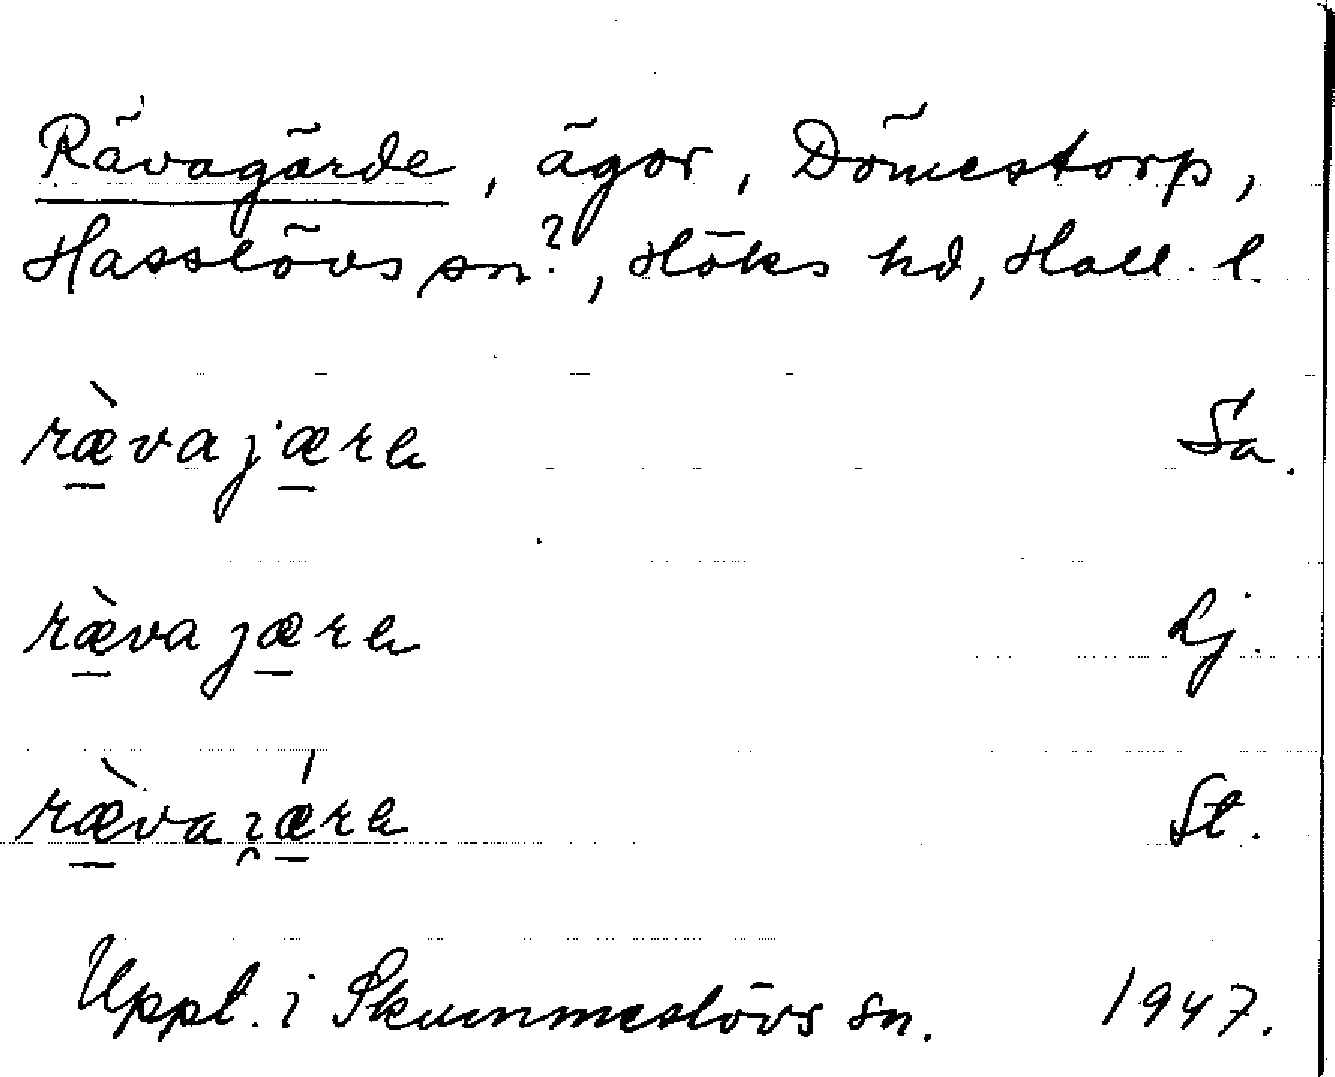 Rävagärde, ägor, Dömestorp,
Hasslövs sn?, Höks hd, Hall. l.
ræ̀vajærə Sa.
ræ̀vajærə Lj.
ræ̀vaɿǽrə St.
Uppt. i Skummeslövs sn. 1947.